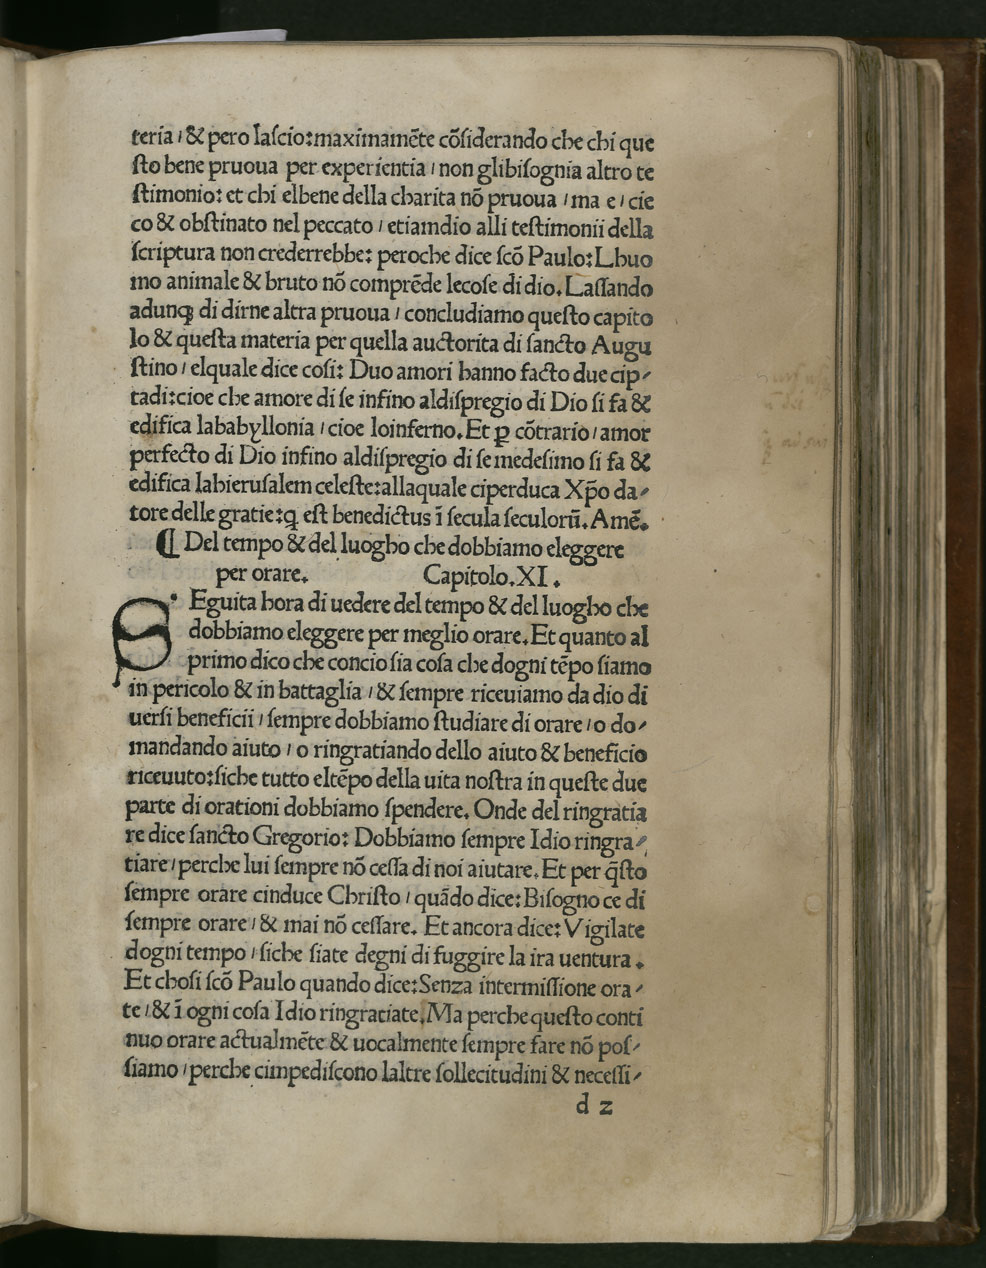 teria / & pero laſcio:maximamēte cōſiderando che chi que
ſto bene pruoua per experientia / non glibiſognia altro te
ſtimonio: et chi elbene della charita nō pruoua / ma e / cie
co & obſtinato nel peccato / etiamdio alli teſtimonii della
ſcriptura non crederrebbe: peroche dice ſcō Paulo: Lhuo
mo animale & bruto nō comprēde lecoſe di dio. Laſſando
adunqꝫ di dirne altra pruoua / concludiamo queſto capito
lo & queſta materia per quella auctorita di ſancto Augu
ſtino / elquale dice coſi: Duo amori hanno facto due cip⸗
tadi:cioe che amore di ſe infino aldiſpregio di Dio ſi fa &
edifica lababyllonia / cioe loinferno. Et ꝑ cōtrario / amor
perfecto di Dio infino aldiſpregio di ſe medeſimo ſi fa &
edifica lahieruſalem celeſte:allaquale ciperduca Xp̄o da⸗
tore delle gratie:q̨ eſt benedictus ī ſecula ſeculorū. Amē.
¶ Del tempo & del luogho che dobbiamo eleggere
per orare. Capitolo. XI.
SEguita hora di uedere del tempo & del luogho che
dobbiamo eleggere per meglio orare. Et quanto al
primo dico che concio ſia coſa che dogni tēpo ſiamo
in pericolo & in battaglia / & ſempre riceuiamo da dio di
uerſi beneficii / ſempre dobbiamo ſtudiare di orare / o do⸗
mandando aiuto / o ringratiando dello aiuto & beneficio
riceuuto:ſiche tutto eltēpo della uita noſtra in queſte due
parte di orationi dobbiamo ſpendere. Onde del ringratia
re dice ſancto Gregorio: Dobbiamo ſempre Idio ringra⸗
tiare / perche lui ſempre nō ceſſa di noi aiutare. Et per q̄ſto
ſempre orare cinduce Chriſto / quādo dice: Biſogno ce di
ſempre orare / & mai nō ceſſare. Et ancora dice: Vigilate
dogni tempo / ſiche ſiate degni di fuggire la ira uentura.
Et choſi ſcō Paulo quando dice:Senza intermiſſione ora⸗
te / & ī ogni coſa Idio ringratiate. Ma perche queſto conti
nuo orare actualmēte & uocalmente ſempre fare nō poſ⸗
ſiamo / perche cimpediſcono laltre ſollecitudini & neceſſi⸗
d 2